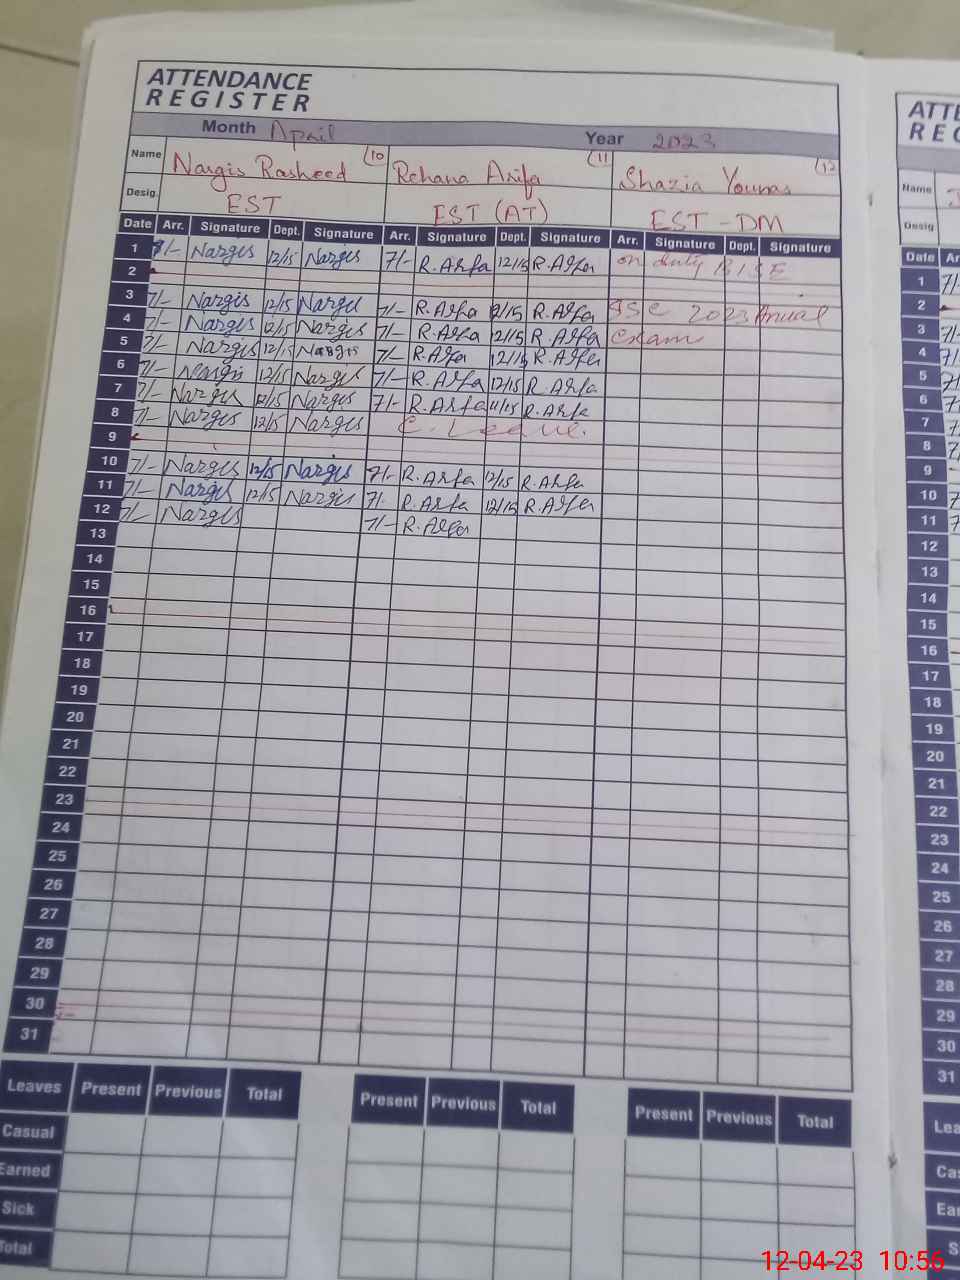 ATTENDANCE
REGISTER
Month April Year 2023
Name Nargis Rasheed 10 Rehana Arifa 11 Shazia Younas 12
Desig. EST EST (AT) EST - DM
Date Arr. Signature Dept. Signature Arr. Signature Dept. Signature Arr. Signature Dept. Signature
1 7/- Nargis 12/15 Nargis 7/- R.Arfa 12/15 R.Arfa on duty BISE
2
3 7/- Nargis 12/15 Nargis 7/- R.Arfa 12/15 R.Arfa SSC 2023 Anual
4 7/- Nargis 12/15 Nargis 7/- R.Arfa 12/15 R.Arfa exam
5 7/- Nargis 12/15 Nargis 7/- R.Arfa 12/15 R.Arfa
6 7/- Nargis 12/15 Nargis 7/- R.Arfa 12/15 R.Arfa
7 7/- Nargis 12/15 Nargis 7/- R.Arfa 11/15 R.Arfa
8 7/- Nargis 12/15 Nargis C. Leave.
9
10 7/- Nargis 12/15 Nargis 7/- R.Arfa 12/15 R.Arfa
11 7/- Nargis 12/15 Nargis 7/- R.Arfa 12/15 R.Arfa
12 7/- Nargis 7/- R.Arfa
13
14
15
16
17
18
19
20
21
22
23
24
25
26
27
28
29
30
31
Leaves Present Previous Total Present Previous Total Present Previous Total
Casual
Earned
Sick
Total
ATTE
REG
Name
Desig
Date Ar
1 7/-
2
3 7/-
4 7/
5 7
6 7
7 7
8 7/
9
10 7
11 7
12
13
14
15
16
17
18
19
20
21
22
23
24
25
26
27
28
29
30
31
Lea
Cas
Ear
S
12-04-23 10:56